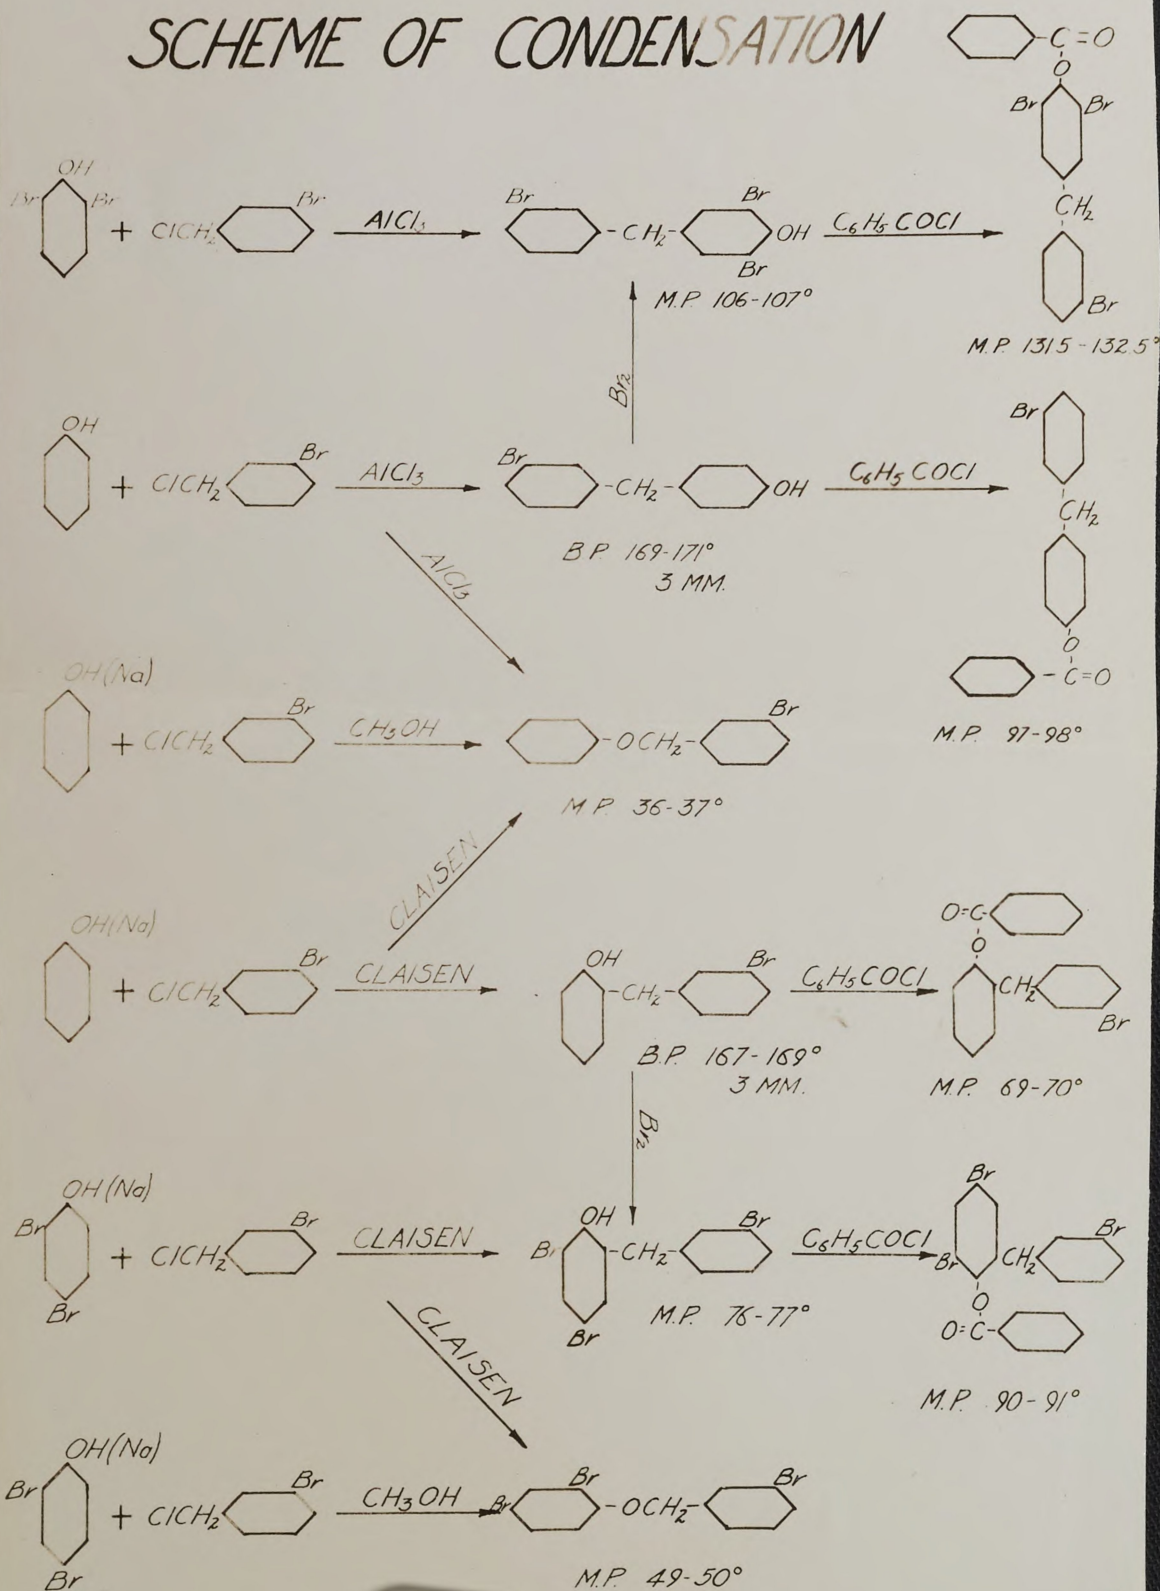 SCHEME OF CONDENSATION
C=O
O
Br Br
CH2
Br
M.P. 131.5-132.5°
OH
Br Br
+ ClCH2 Br
AlCl3
Br
-CH2-
Br
OH
Br
C6H5COCl
M.P. 106-107°
Br2
OH
+ ClCH2 Br
AlCl3
Br
-CH2- OH
C6H5COCl
B.P. 169-171°
3 MM.
Br
CH2
O
-C=O
M.P. 97-98°
AlCl3
OH(Na)
+ ClCH2 Br
CH3OH
-OCH2- Br
M.P. 36-37°
CLAISEN
OH(Na)
+ ClCH2 Br
CLAISEN
OH
-CH2- Br
C6H5COCl
B.P. 167-169°
3 MM.
O=C-
O
CH2
Br
M.P. 69-70°
Br2
OH(Na)
Br
+ ClCH2 Br
Br
CLAISEN
OH
Br -CH2- Br
Br
C6H5COCl
M.P. 76-77°
Br
Br CH2 Br
O
O=C-
M.P. 90-91°
CLAISEN
OH(Na)
Br
+ ClCH2 Br
Br
CH3OH
Br
Br -OCH2- Br
M.P. 49-50°